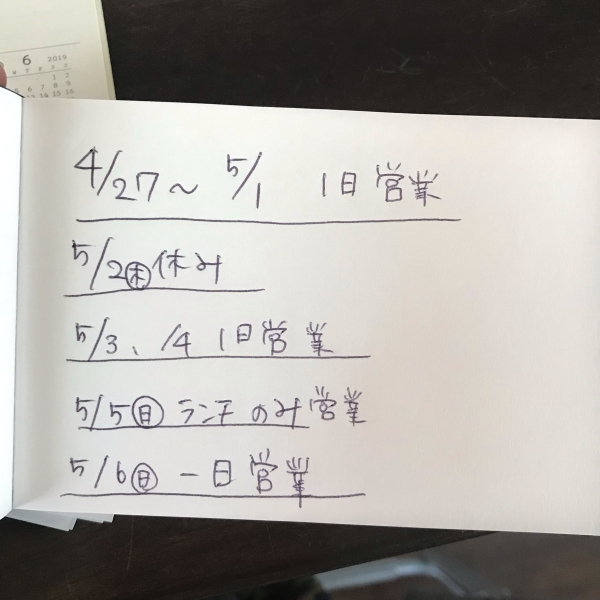 6 2019
1 2
5 6 7 8 9
12 13 14 15 16
4/27～5/1 1日営業
5/2㊍休み
5/3、/4 1日営業
5/5㊐ランチのみ営業
5/6㊐一日営業